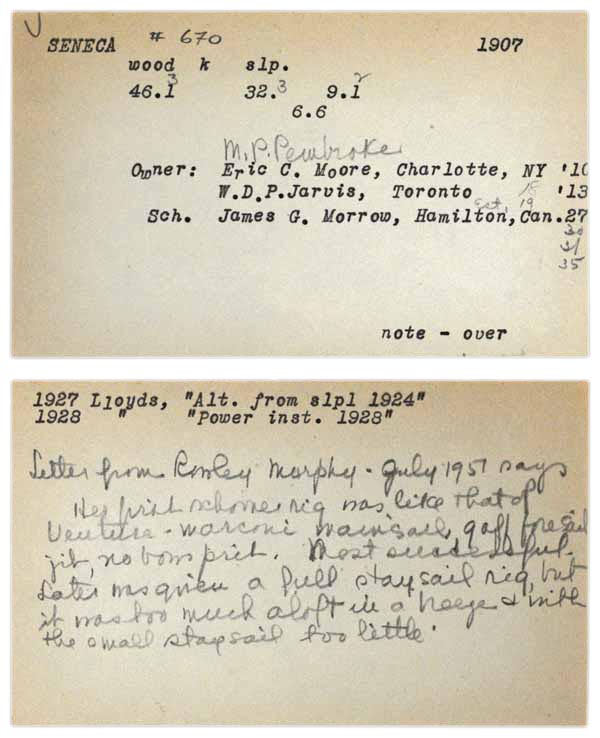 SENECA # 670 1907
wood k slp.
46.1 3 32.3 9.1 2
6.6
M.P. Pembroke
Owner: Eric C. Moore, Charlotte, NY '10
W.D.P.Jarvis, Toronto 18 '13
Est. 19
Sch. James G. Morrow, Hamilton, Can. 27
30
31
35
note - over
1927 Lloyds, "Alt. from slpl 1924"
1928 " "Power inst. 1928"
Letter from Rowley Murphy - July 1951 says
Her first schooner rig was like that of
Venture - marconi mainsail, gaff foresail
jib, no bowsprit. Most successful.
Later was given a full staysail rig, but
it was too much aloft in a breeze & with
the small staysail too little.